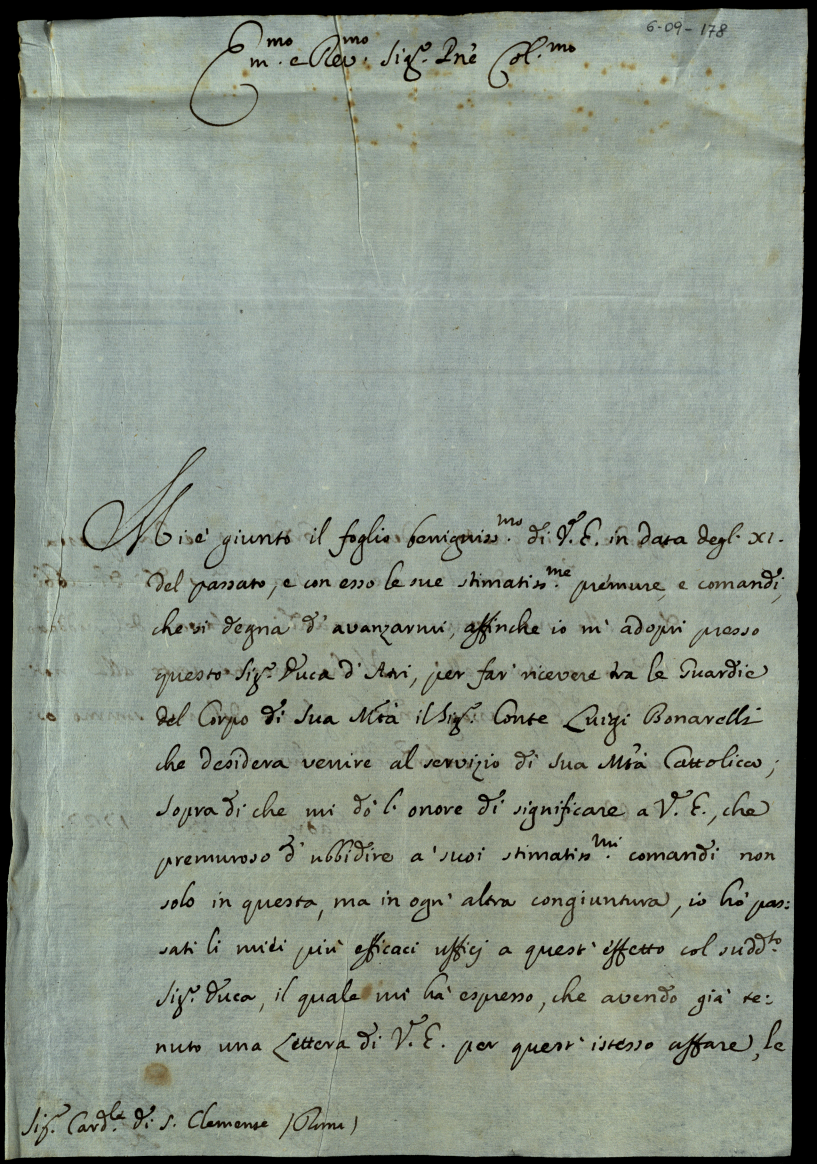 6-09-178
Em.mo e Rev.mo Sig.r Pr͠ne Col.mo
Mi è giunto il foglio benigniss.mo di V.ra E. in data degl. XI.
del passato, e con esso le sue stimatiss.me premure, e comandi,
che si degna d'avanzarmi, affinche io m'adopri presso
questo Sig.r Duca d'Atri, per far' ricevere tra le Guardie
del Corpo di Sua Mtà il Sig.r Conte Luigi Bonarelli
che desidera venire al servizio di sua Mtà Cattolica;
sopra di che mi dò l'onore di significare a V.ra E., che
premuroso d'ubbidire a' suoi stimatiss.mi comandi non
solo in questa, ma in ogn'altra congiuntura, io hò pas=
sati li miei più efficaci ufficj a quest'effetto col sudd.to
Sig.r Duca, il quale mi hà espresso, che avendo già te=
nuto una Lettera di V.ra E. per quest'istesso affare, le
Sig.r Card.le di S. Clemente (Roma)